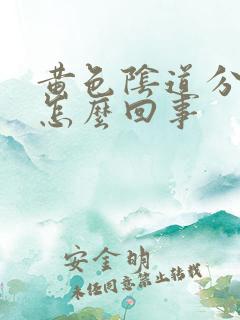 黄色陰道分
怎麼回事
安金明
未任同意禁止转载